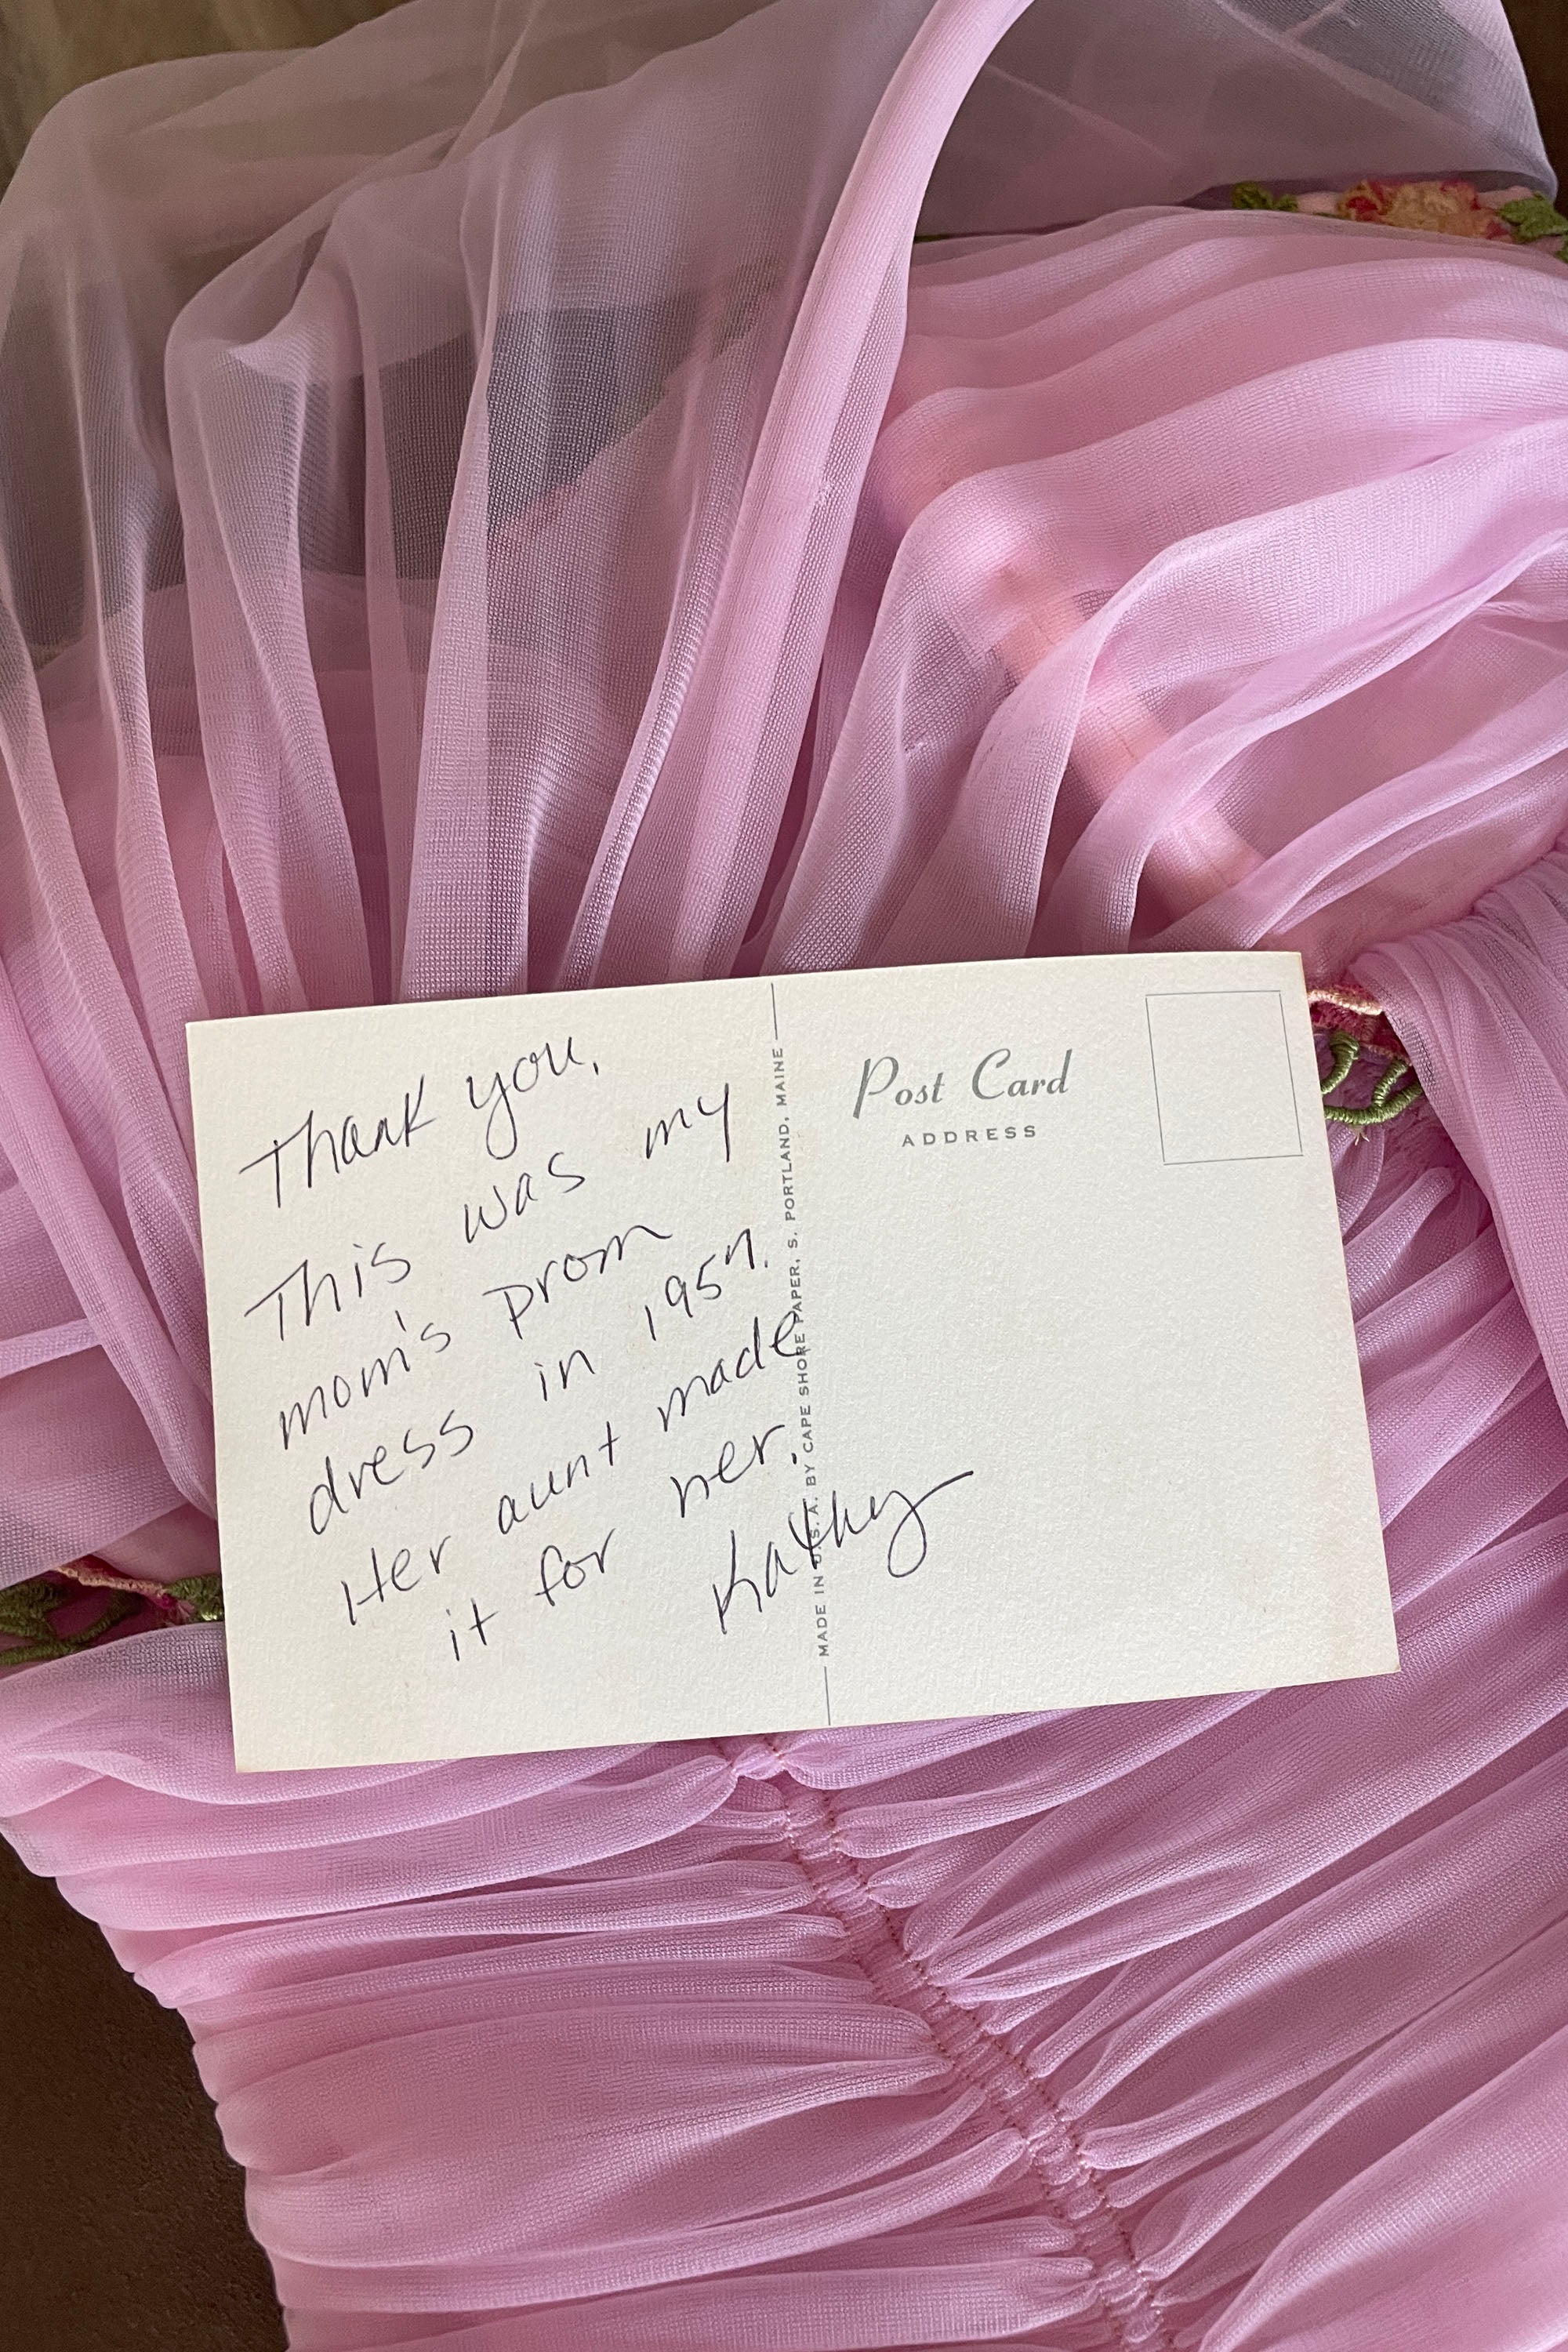 Thank you,
This was my
mom's prom
dress in 1957.
Her aunt made
it for her.
Kathy
MADE IN U.S.A. BY CAPE SHORE PAPER, S. PORTLAND, MAINE
Post Card
ADDRESS